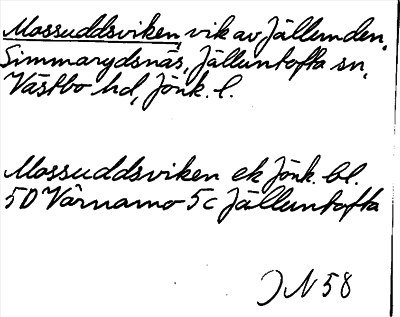 Mossuddsviken, vik av Jällunden,
Simmarydsnäs, Jälluntofta sn,
Västbo hd, Jönk. l.
Mossuddsviken ek Jönk. bl.
5D Värnamo 5c Jälluntofta
JN 58